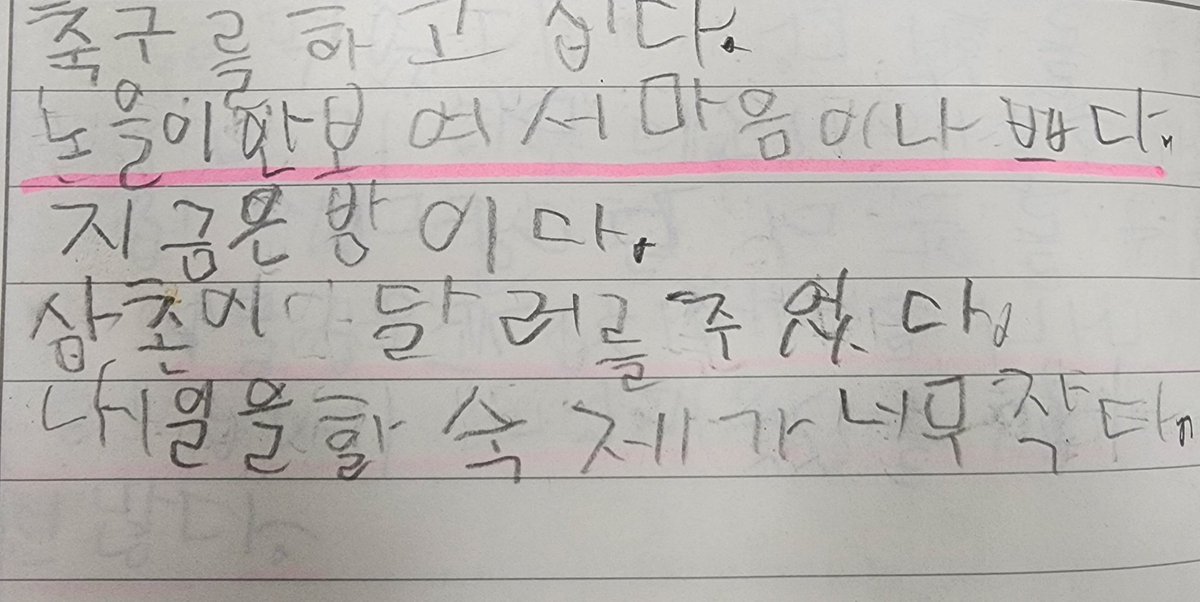 축구를하고 십다.
노을이안보여서마음이나쁘다.
지금은방이다.
삼촌이 달러를주었다.
내일을할숙제가너무작다.